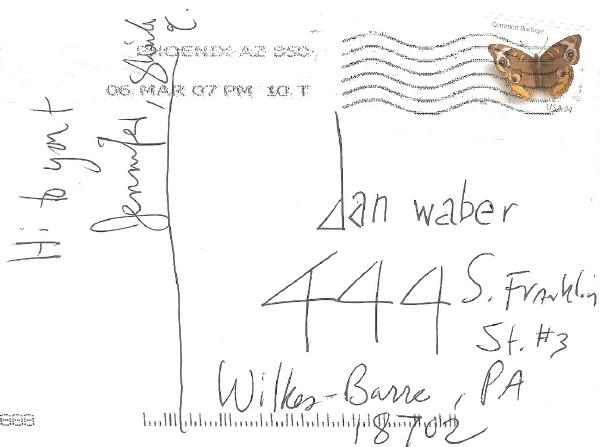 Hi to you +
Jennifer, Sheila
PHOENIX AZ 850
06 MAR 07 PM 10 T
Common Buckeye
USA 24
Dan waber
444 S. Franklin
St. #3
Wilkes-Barre, PA
18702